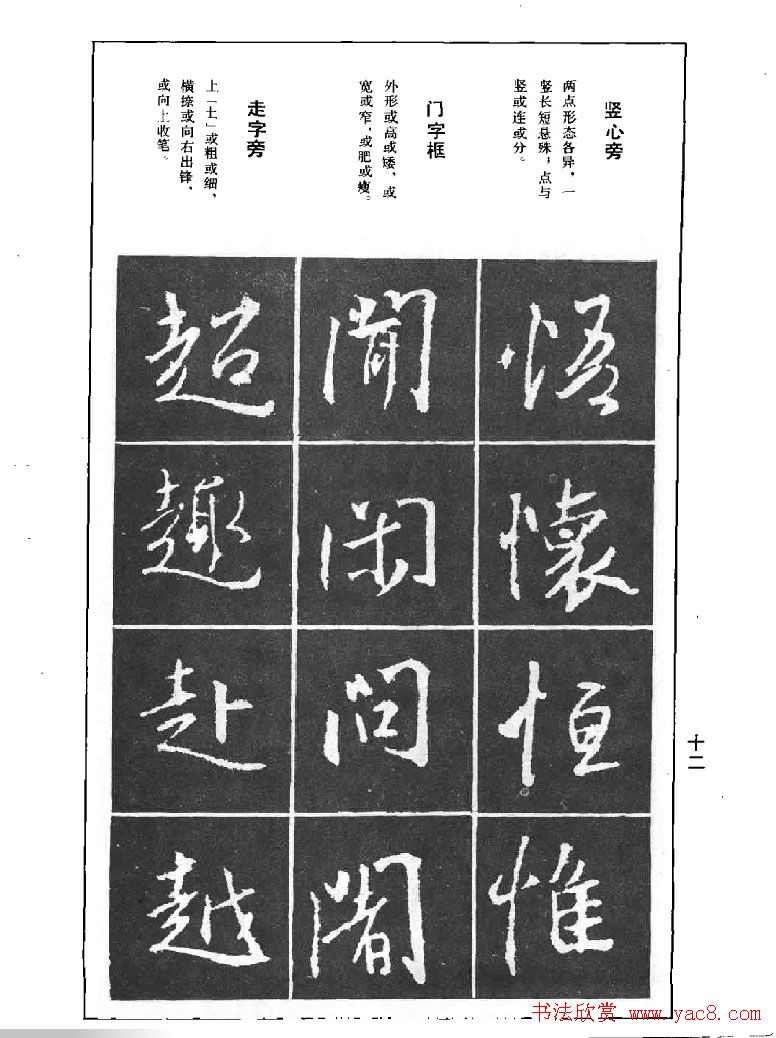 竖心旁
两点形态各异，一
竖长短悬殊；点与
竖或连或分。
门字框
外形或高或矮，或
宽或窄，或肥或瘦。
走字旁
上「土」或粗或细，
横捺或向右出锋，
或向上收笔。
悟
懷
恒
惟
閑
問
超
趣
赴
越
十二
书法欣赏 www.yac8.com